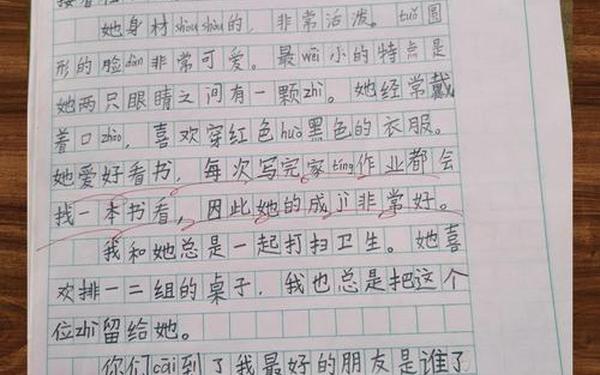 她身材shòu shòu的，非常活泼。tuǒ圆
形的脸dàn非常可爱。最wēi小的特点是
她两只眼睛之间有一颗zhì。她经常戴
着口zhào，喜欢穿红色huò黑色的衣服。
她爱好看书，每次写完家tíng作业都会
找一本书看，因此她的成jì非常好。
我和她总是一起打扫卫生。她喜
欢排一二组的桌子，我也总是把这个
位zhì留给她。
你们cāi到了我最好的朋友是谁了